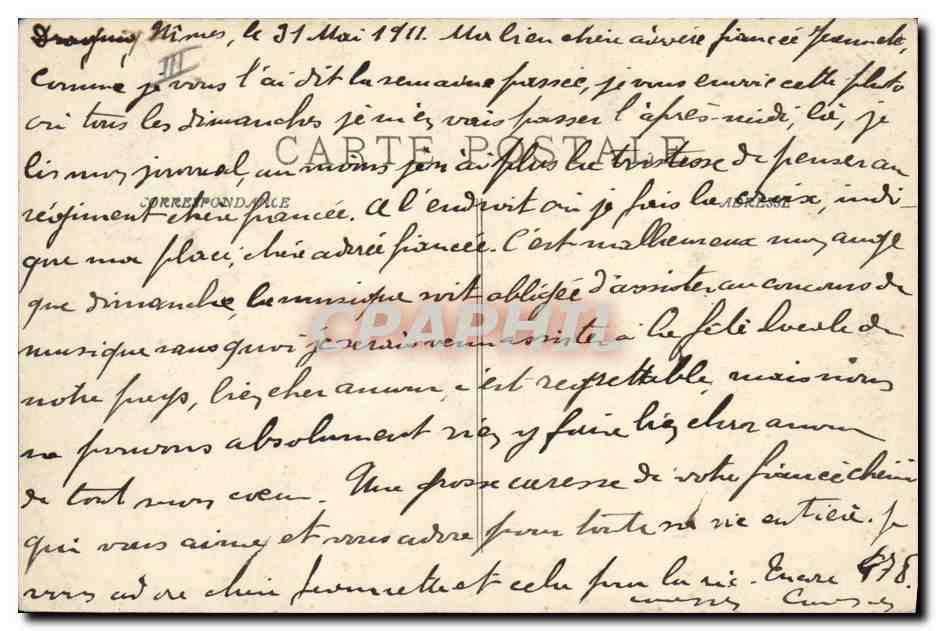 Nîmes, le 31 Mai 1911. Ma bien chère adorée fiancée Jeannette,
III
comme je vous l'ai dit la semaine passée, je vous envoie cette photo
où tous les dimanches je m'en vais passer l'après-midi, là, je
CARTE POSTALE
lis mon journal, au moins je n'ai plus la tristesse de penser au
CORRESPONDANCE ADRESSE
régiment chère fiancée. A l'endroit où je fais la croix, indi-
que ma place, chère adorée fiancée. C'est malheureux mon ange
que dimanche, la musique soit obligée d'assister au concours de
CPAPHIL
musique sans quoi je serais venu assister à la fête locale de
notre pays, bien cher amour, c'est regrettable, mais nous
ne pouvons absolument rien y faire bien cher amour
de tout mon cœur. Une grosse caresse de votre fiancé chéri
qui vous aime et vous adore pour toute sa vie entière. Je
vous adore chère Jeannette et cela pour la vie. Encore 478.